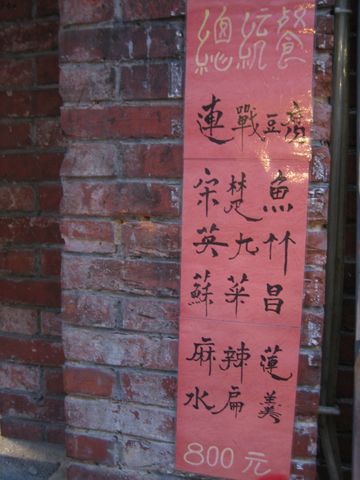 連戰豆腐
宋楚魚
英九竹
蘇菜昌
麻辣蓮
水扁羹
800元